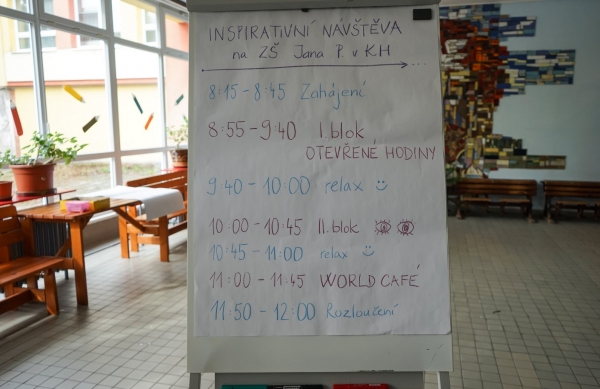 INSPIRATIVNÍ NÁVŠTĚVA
na ZŠ Jana P. v KH
8:15 - 8:45 Zahájení
8:55 - 9:40 I. blok
OTEVŘENÉ HODINY
9:40 - 10:00 relax
10:00 - 10:45 II. blok
10:45 - 11:00 relax
11:00 - 11:45 WORLD CAFÉ
11:50 - 12:00 Rozloučení